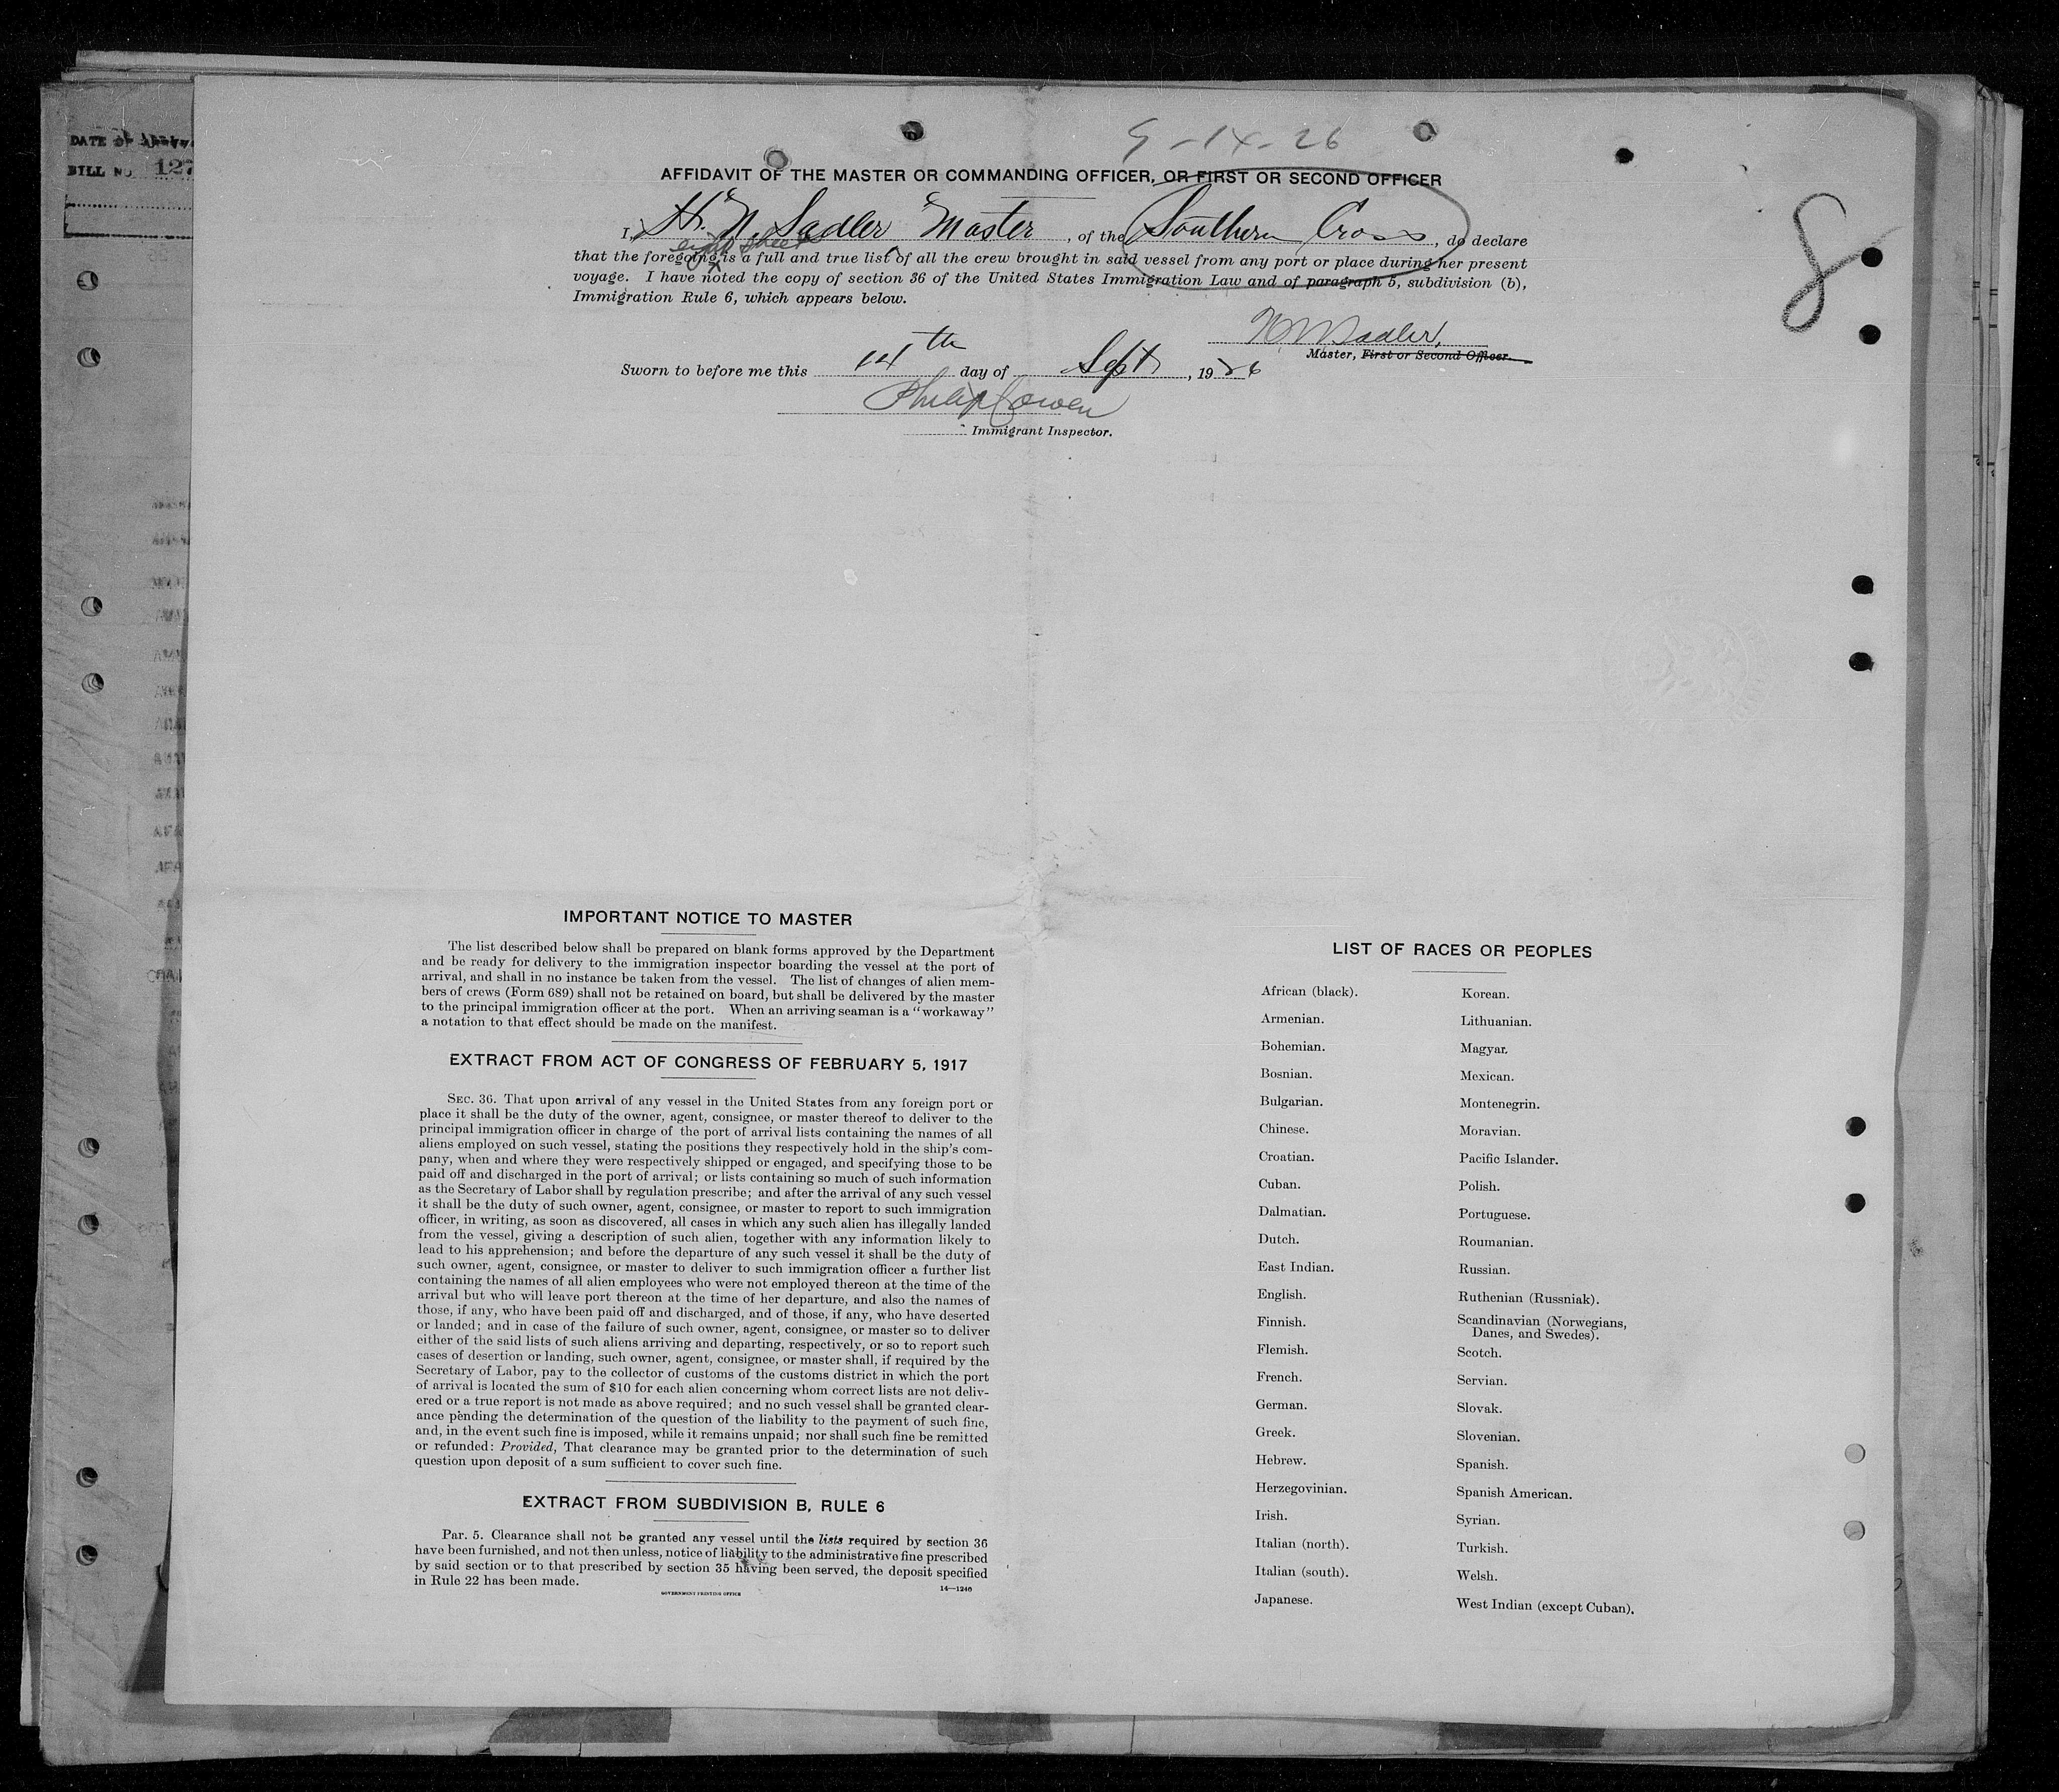 DATE OF
BILL NO. 127
9-14-26
AFFIDAVIT OF THE MASTER OR COMMANDING OFFICER, OR FIRST OR SECOND OFFICER
8
I, H. N. Sadler Master, of the Southern Cross, do declare
eight sheets
that the foregoing is a full and true list of all the crew brought in said vessel from any port or place during her present
voyage. I have noted the copy of section 36 of the United States Immigration Law and of paragraph 5, subdivision (b),
Immigration Rule 6, which appears below.
H N Sadler,
Master, First or Second Officer.
Sworn to before me this 14th day of Sept, 1926
Philip Cowen
Immigrant Inspector.
IMPORTANT NOTICE TO MASTER
The list described below shall be prepared on blank forms approved by the Department
and be ready for delivery to the immigration inspector boarding the vessel at the port of
arrival, and shall in no instance be taken from the vessel. The list of changes of alien mem-
bers of crews (Form 689) shall not be retained on board, but shall be delivered by the master
to the principal immigration officer at the port. When an arriving seaman is a "workaway"
a notation to that effect should be made on the manifest.
EXTRACT FROM ACT OF CONGRESS OF FEBRUARY 5, 1917
SEC. 36. That upon arrival of any vessel in the United States from any foreign port or
place it shall be the duty of the owner, agent, consignee, or master thereof to deliver to the
principal immigration officer in charge of the port of arrival lists containing the names of all
aliens employed on such vessel, stating the positions they respectively hold in the ship's com-
pany, when and where they were respectively shipped or engaged, and specifying those to be
paid off and discharged in the port of arrival; or lists containing so much of such information
as the Secretary of Labor shall by regulation prescribe; and after the arrival of any such vessel
it shall be the duty of such owner, agent, consignee, or master to report to such immigration
officer, in writing, as soon as discovered, all cases in which any such alien has illegally landed
from the vessel, giving a description of such alien, together with any information likely to
lead to his apprehension; and before the departure of any such vessel it shall be the duty of
such owner, agent, consignee, or master to deliver to such immigration officer a further list
containing the names of all alien employees who were not employed thereon at the time of the
arrival but who will leave port thereon at the time of her departure, and also the names of
those, if any, who have been paid off and discharged, and of those, if any, who have deserted
or landed; and in case of the failure of such owner, agent, consignee, or master so to deliver
either of the said lists of such aliens arriving and departing, respectively, or so to report such
cases of desertion or landing, such owner, agent, consignee, or master shall, if required by the
Secretary of Labor, pay to the collector of customs of the customs district in which the port
of arrival is located the sum of $10 for each alien concerning whom correct lists are not deliv-
ered or a true report is not made as above required; and no such vessel shall be granted clear-
ance pending the determination of the question of the liability to the payment of such fine,
and, in the event such fine is imposed, while it remains unpaid; nor shall such fine be remitted
or refunded: Provided, That clearance may be granted prior to the determination of such
question upon deposit of a sum sufficient to cover such fine.
EXTRACT FROM SUBDIVISION B, RULE 6
Par. 5. Clearance shall not be granted any vessel until the lists required by section 36
have been furnished, and not then unless, notice of liability to the administrative fine prescribed
by said section or to that prescribed by section 35 having been served, the deposit specified
in Rule 22 has been made.
GOVERNMENT PRINTING OFFICE 14—1246
LIST OF RACES OR PEOPLES
African (black).
Armenian.
Bohemian.
Bosnian.
Bulgarian.
Chinese.
Croatian.
Cuban.
Dalmatian.
Dutch.
East Indian.
English.
Finnish.
Flemish.
French.
German.
Greek.
Hebrew.
Herzegovinian.
Irish.
Italian (north).
Italian (south).
Japanese.
Korean.
Lithuanian.
Magyar.
Mexican.
Montenegrin.
Moravian.
Pacific Islander.
Polish.
Portuguese.
Roumanian.
Russian.
Ruthenian (Russniak).
Scandinavian (Norwegians,
Danes, and Swedes).
Scotch.
Servian.
Slovak.
Slovenian.
Spanish.
Spanish American.
Syrian.
Turkish.
Welsh.
West Indian (except Cuban).